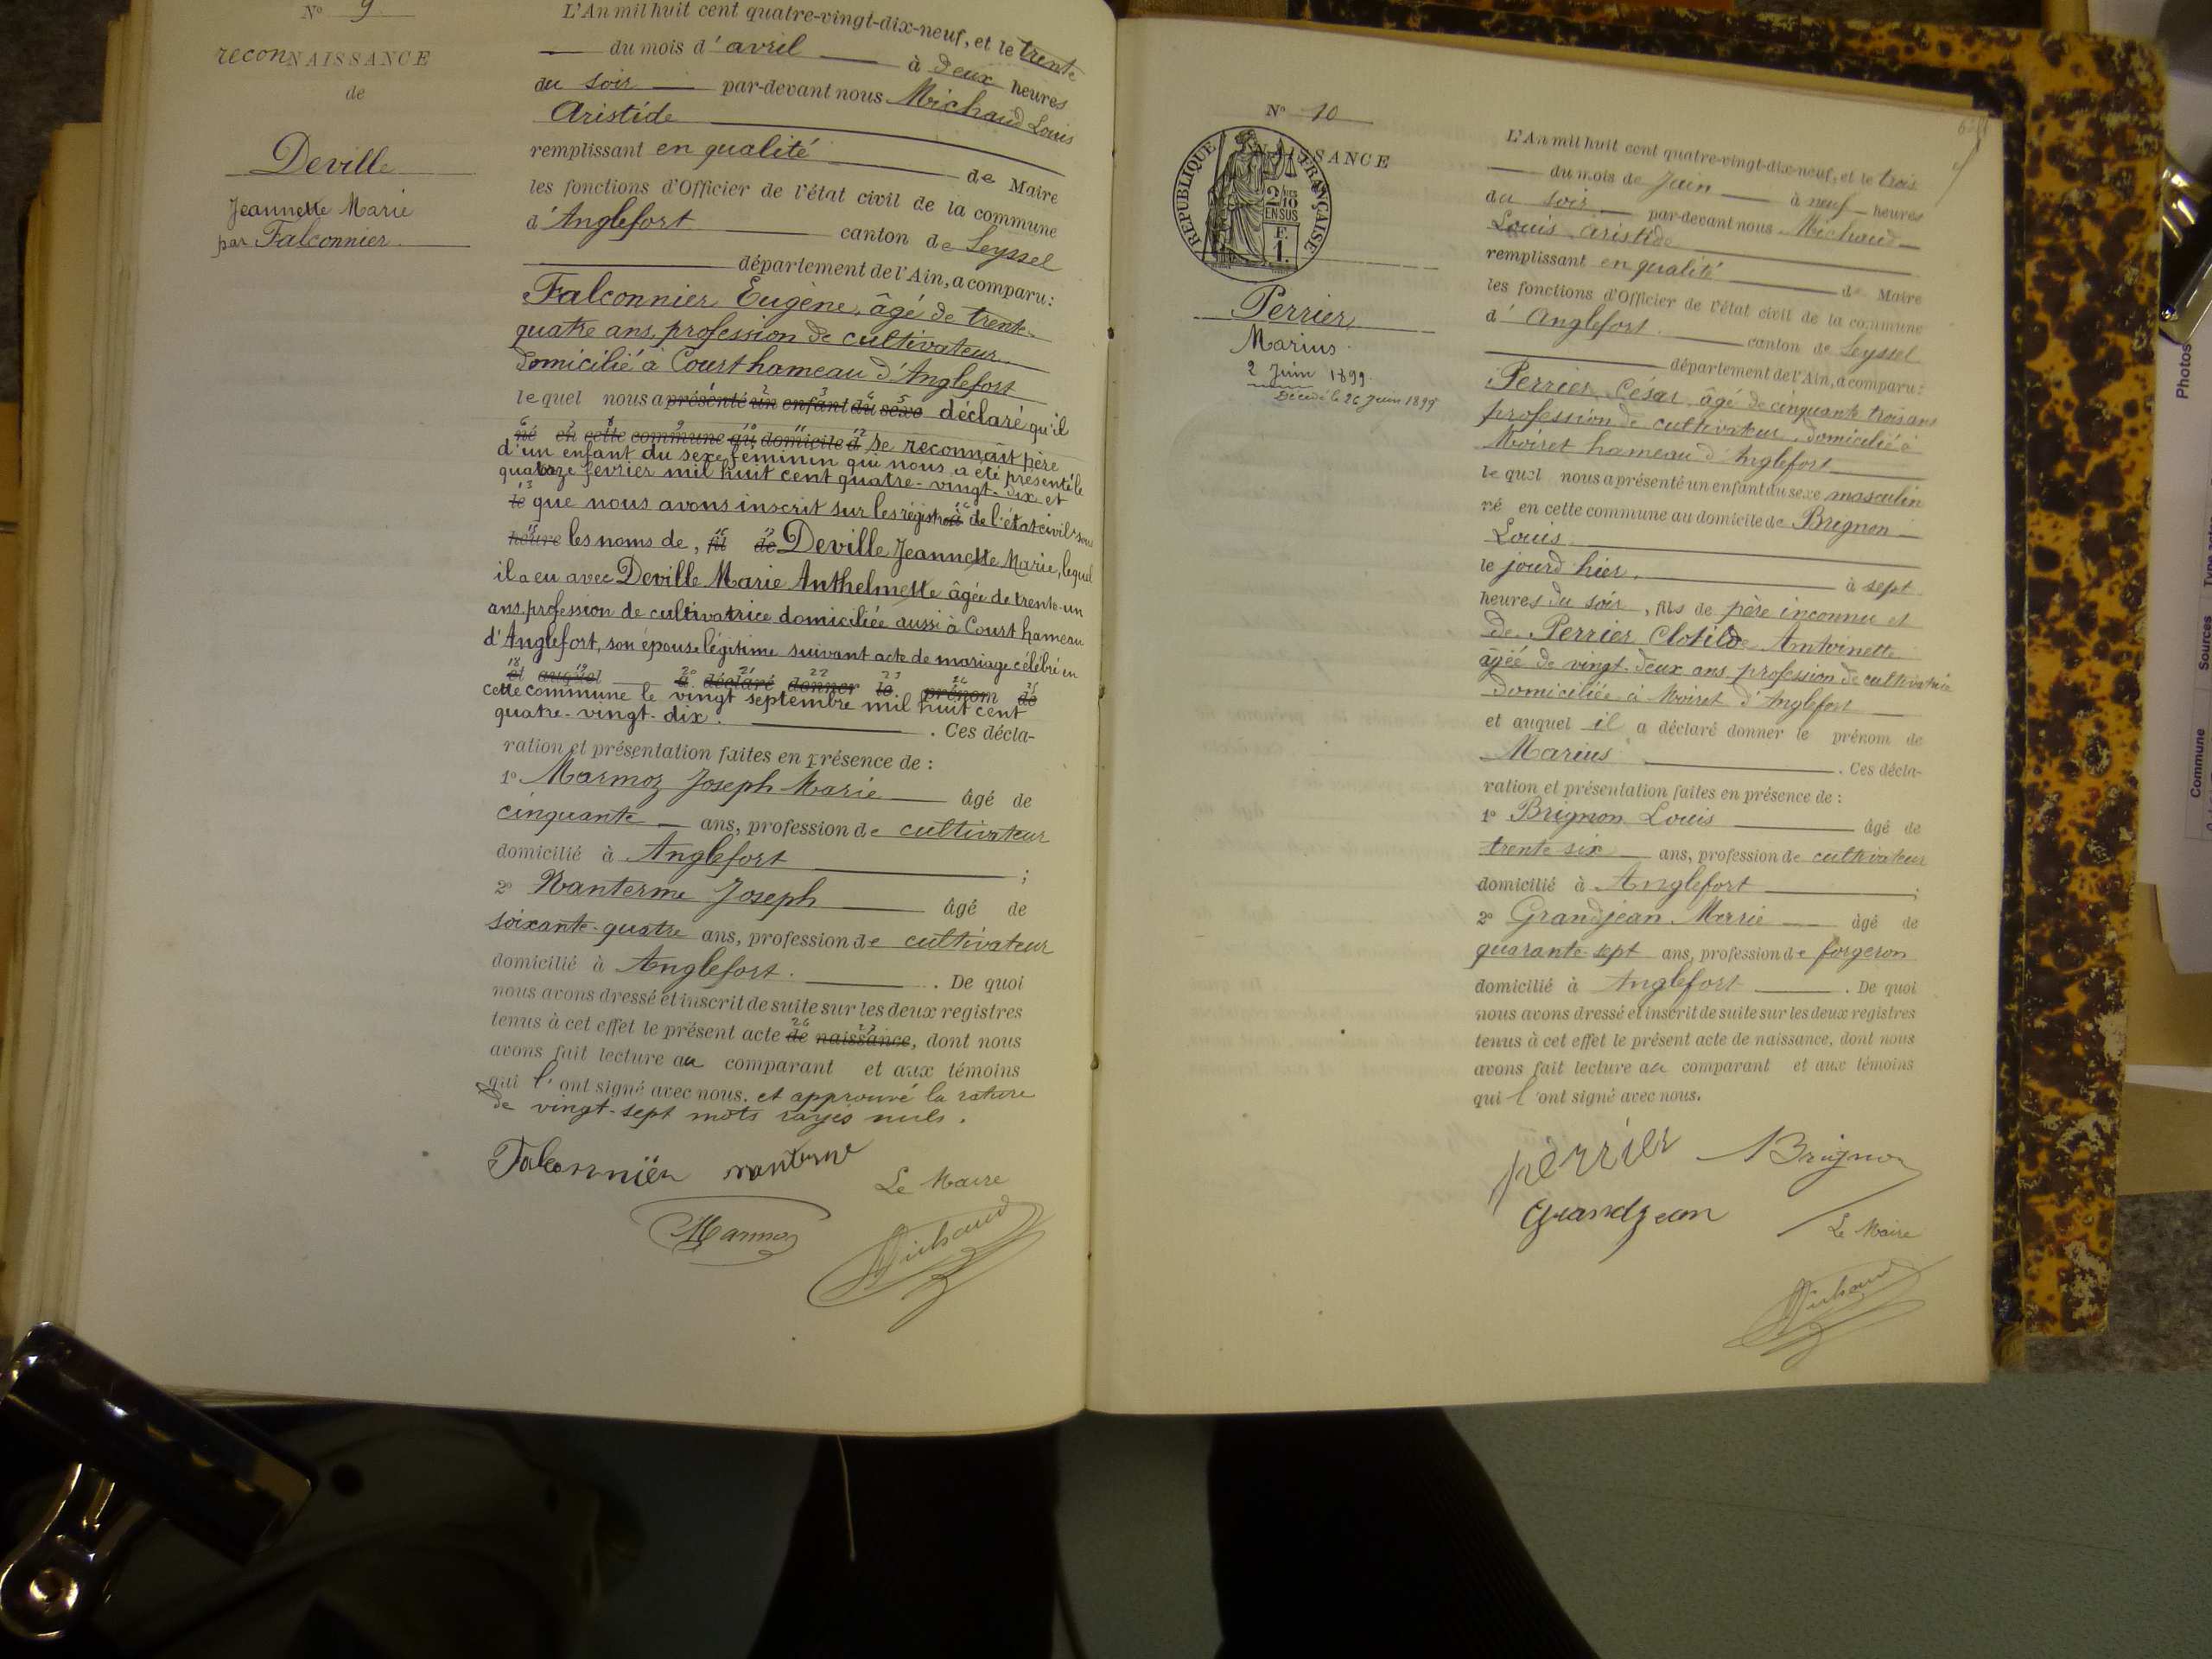 N° 9
reconNAISSANCE
de
Deville
Jeannette Marie
par Falconnier.
L'An mil huit cent quatre-vingt-dix-neuf, et le trente
du mois d'avril à deux heures
du soir par-devant nous Michaud Louis
Aristide
remplissant en qualité de Maire
les fonctions d'Officier de l'état civil de la commune
d'Anglefort canton de Seyssel
département de l'Ain, a comparu:
Falconnier Eugène, âgé de trente-
quatre ans, profession de cultivateur
domicilié à Court hameau d'Anglefort
lequel nous a présenté un enfant du sexe déclaré qu'il
né en cette commune au domicile d se reconnaît père
d'un enfant du sexe féminin qui nous a été présenté le
quatorze février mil huit cent quatre-vingt-dix et
le que nous avons inscrit sur les registres à de l'état civil sous
heure les noms de, fil de Deville Jeannette Marie, lequel
il a eu avec Deville Marie Anthelmette âgée de trente-un
ans, profession de cultivatrice domiciliée aussi à Court hameau
d'Anglefort, son épouse légitime suivant acte de mariage célébré en
et auquel a déclaré donner le prénom de
cette commune le vingt septembre mil huit cent
quatre-vingt-dix. Ces décla-
ration et présentation faites en présence de :
1° Marmoz Joseph Marie âgé de
cinquante ans, profession de cultivateur
domicilié à Anglefort ;
2° Nanterme Joseph âgé de
soixante-quatre ans, profession de cultivateur
domicilié à Anglefort. De quoi
nous avons dressé et inscrit de suite sur les deux registres
tenus à cet effet le présent acte de naissance, dont nous
avons fait lecture au comparant et aux témoins
qui l'ont signé avec nous. et approuvé la rature
de vingt-sept mots rayés nuls.
Falconnier nanterme
Le Maire
Marmoz
Michaud
N° 10
NAISSANCE
REPUBLIQUE FRANÇAISE
2/10 EN SUS
F. 1.
Perrier
Marius
2 Juin 1899.
Décédé le 26 Juin 1899
L'An mil huit cent quatre-vingt-dix-neuf, et le trois
du mois de Juin à neuf heures
du soir par-devant nous Michaud
Louis Aristide
remplissant en qualité de Maire
les fonctions d'Officier de l'état civil de la commune
d'Anglefort canton de Seyssel
département de l'Ain, a comparu:
Perrier César âgé de cinquante trois ans
profession de cultivateur, domicilié à
Moiret hameau d'Anglefort
lequel nous a présenté un enfant du sexe masculin
né en cette commune au domicile de Brignon
Louis
le jourd'hier, à sept
heures du soir, fils de père inconnu et
de Perrier Clotilde Antoinette
âgée de vingt-deux ans profession de cultivatrice
domiciliée à Moiret d'Anglefort
et auquel il a déclaré donner le prénom de
Marius . Ces décla-
ration et présentation faites en présence de :
1° Brignon Louis âgé de
trente six ans, profession de cultivateur
domicilié à Anglefort ;
2° Grandjean Marie âgé de
quarante-sept ans, profession de forgeron
domicilié à Anglefort . De quoi
nous avons dressé et inscrit de suite sur les deux registres
tenus à cet effet le présent acte de naissance, dont nous
avons fait lecture au comparant et aux témoins
qui l'ont signé avec nous.
perrier Brignon
Grandjean
Le Maire
Michaud
Photos
Commune Sources